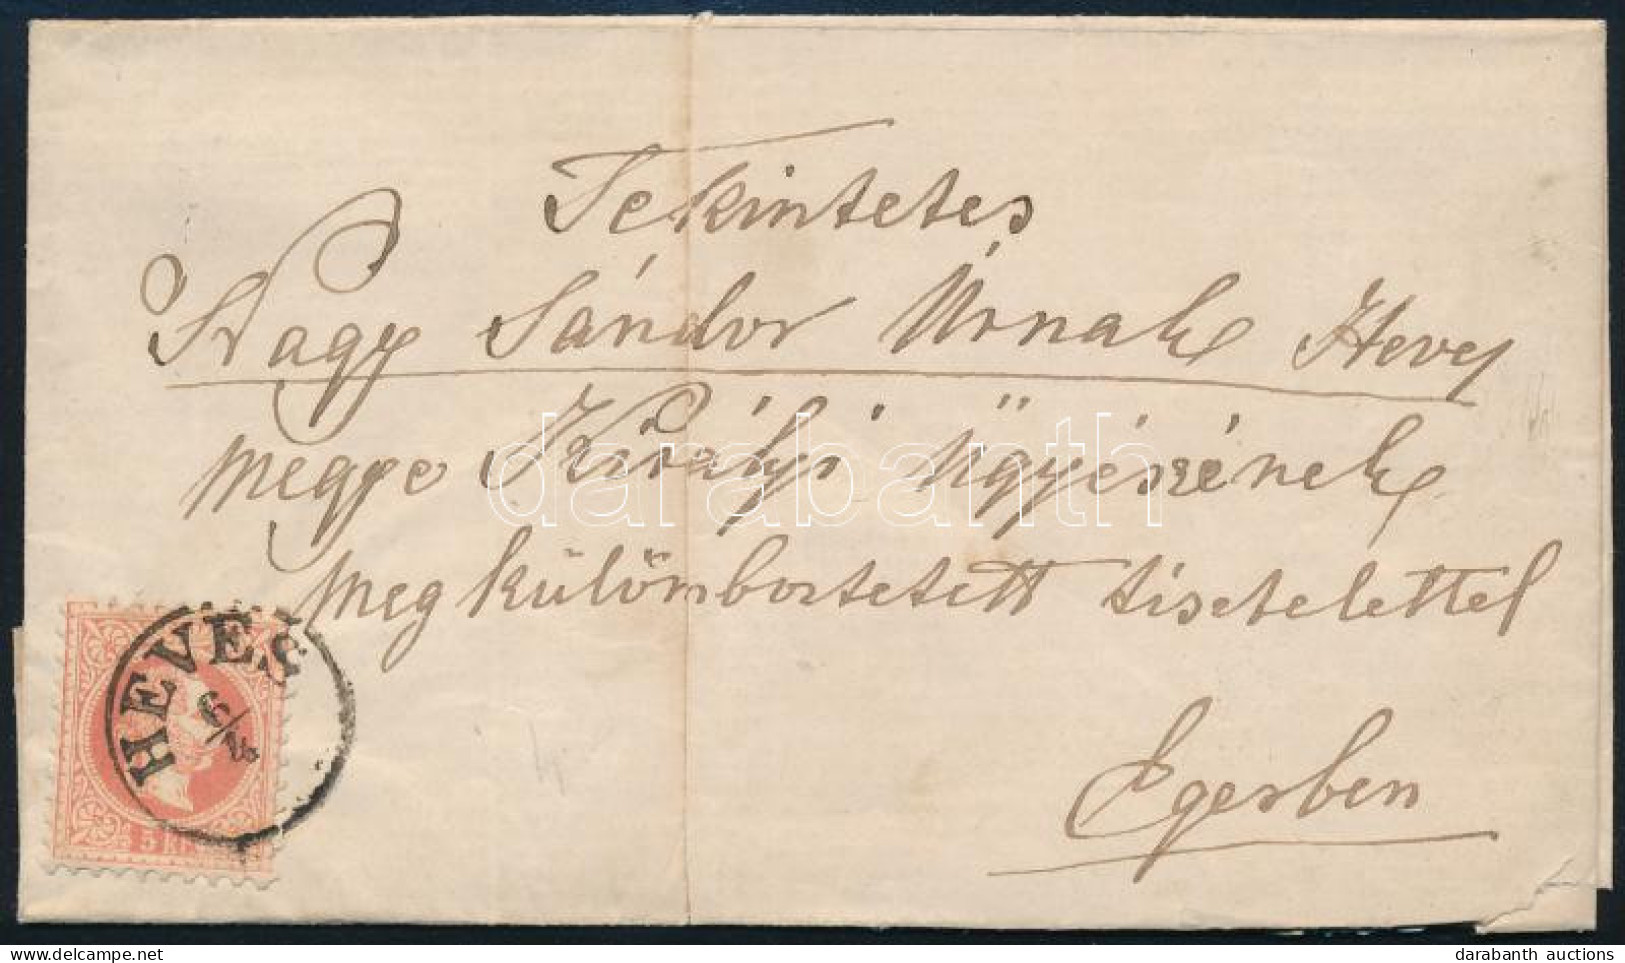 Tekintetes
Nagy Sándor Úrnak Heves
megye Királyi Ügyészének
megkülömboztetett tisztelettel
Egerben
HEVES
6/4
5 KR
darabanth
darabanth auctions